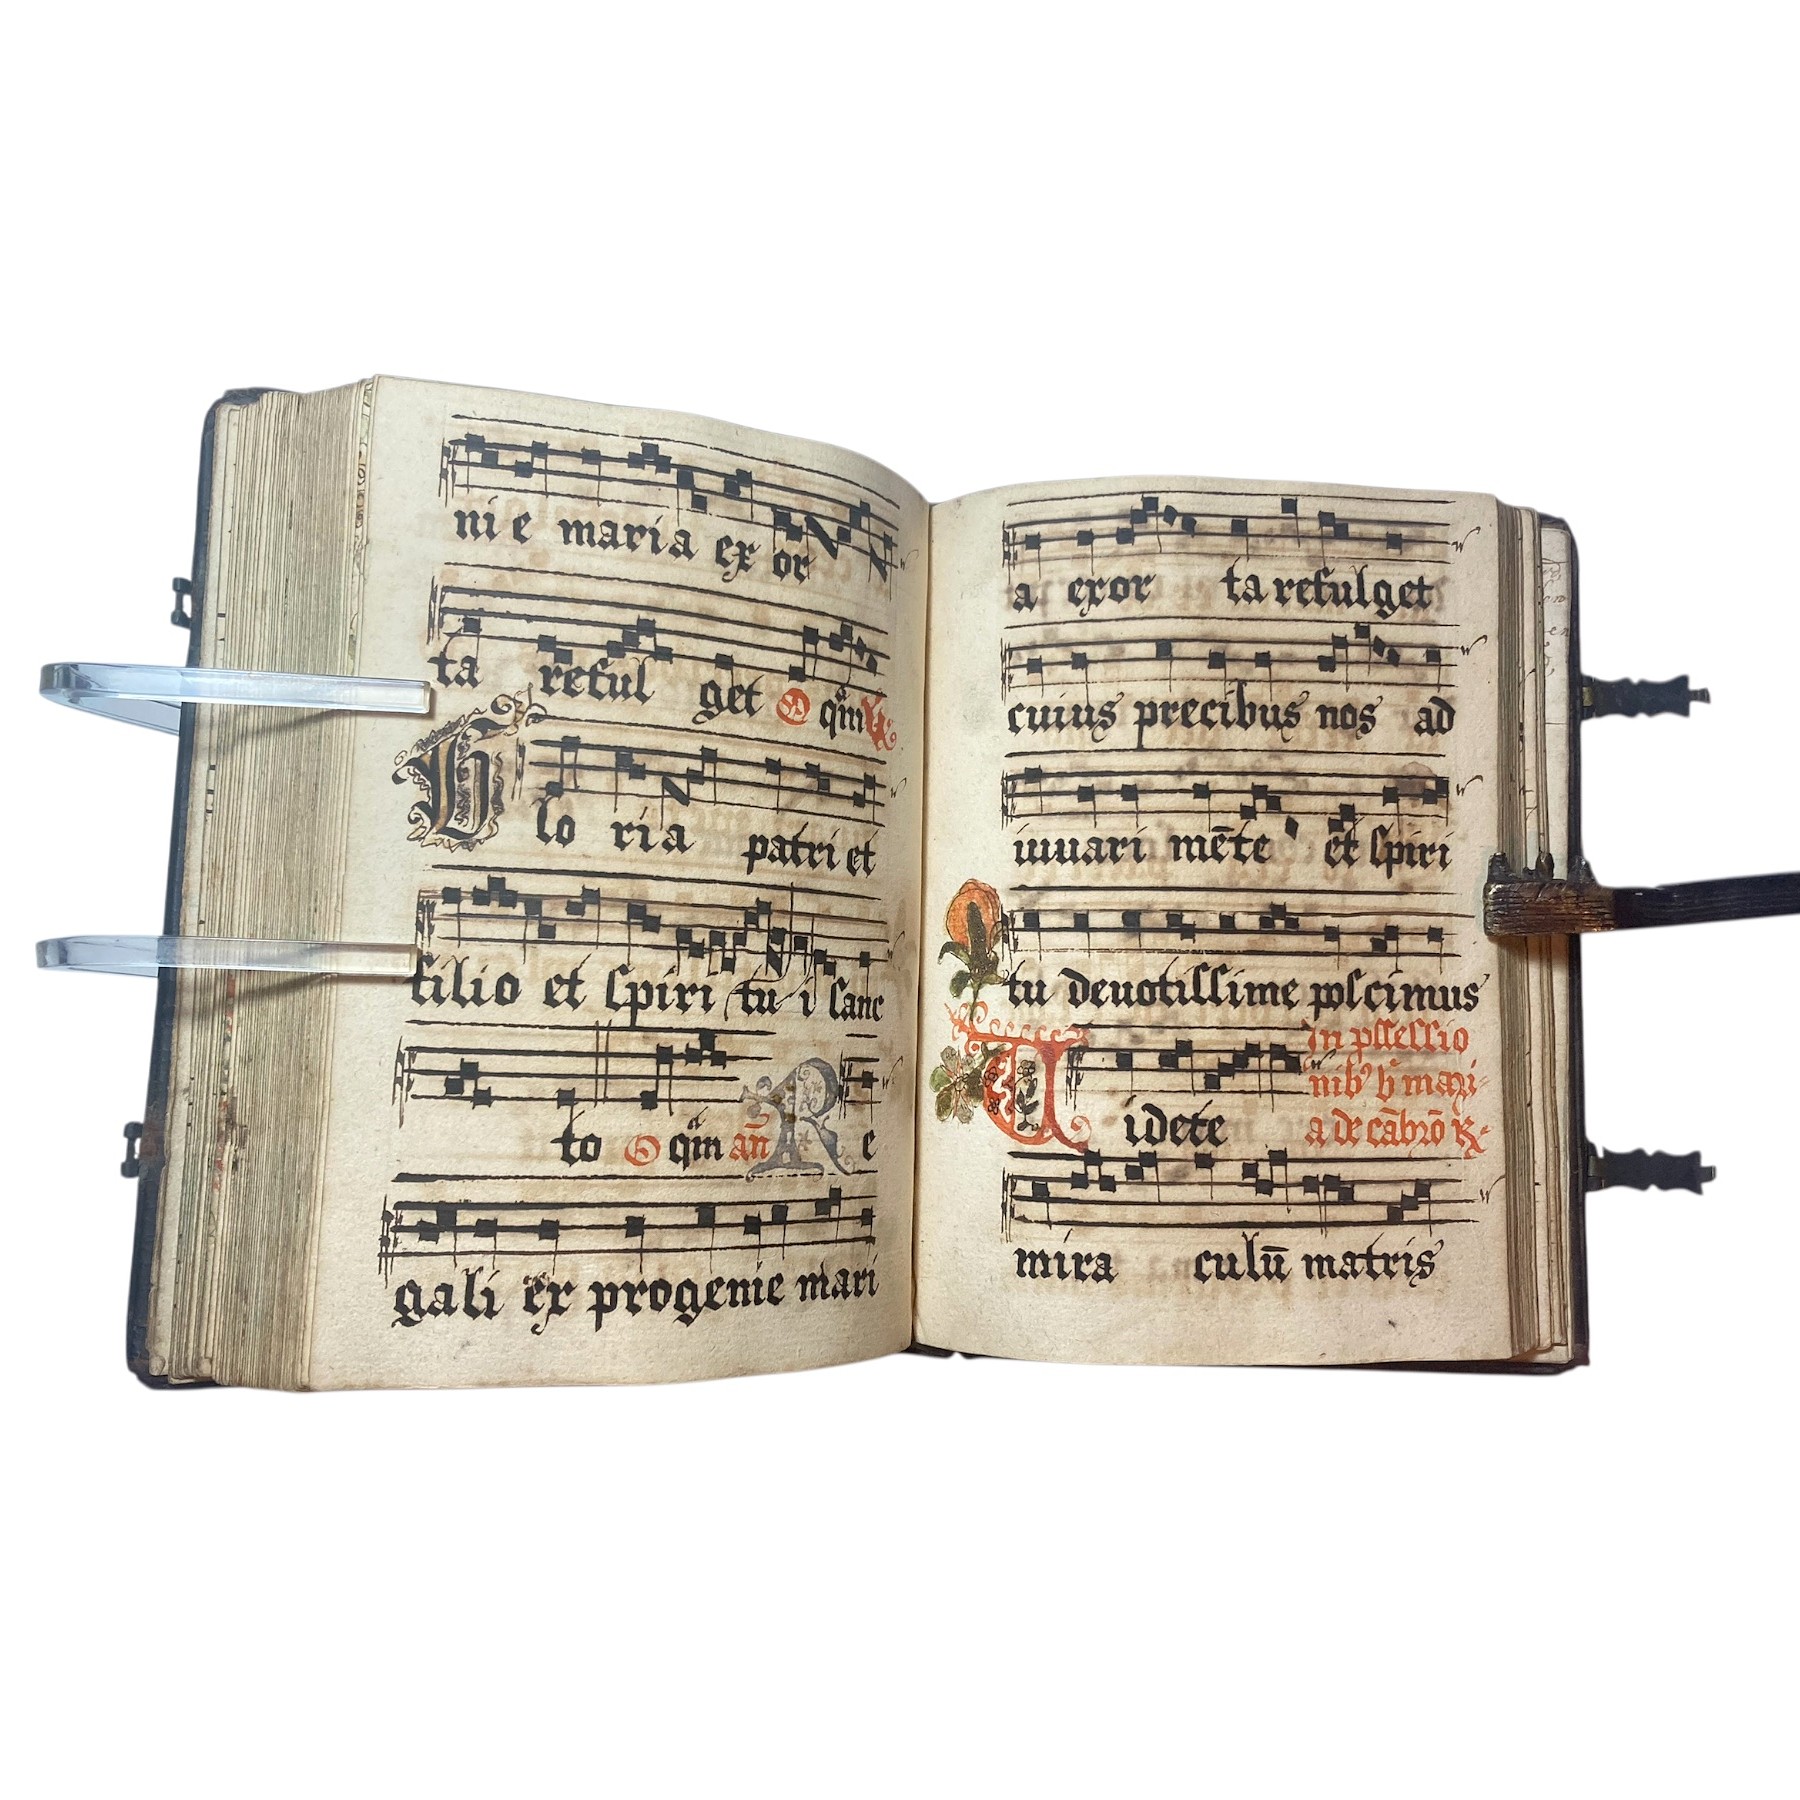 ni e maria ex or
ta reful get O qm̄ V
Glo ria patri et
filio et spiri tu i sanc
to O qm̄ an̄ Re
gali ex progenie mari
a exor ta refulget
cuius precibus nos ad
iuuari mēte et spiri
tu deuotissime poscimus
In pſſeſſio
nib' b̄ mari-
Videte a de cābrō R
mira culū matris